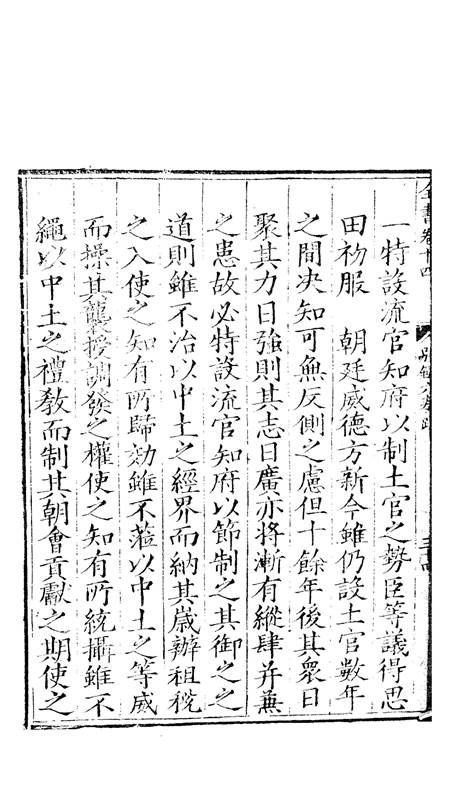 全書卷十四
一特設流官知府以制土官之勢臣等議得思
田初服　朝廷威德方新今雖仍設土官數年
之間决知可無反側之慮但十餘年後其衆日
聚其力日強則其志日廣亦將漸有縱肆并兼
之患故必特設流官知府以節制之其御之之
道則雖不治以中土之經界而納其歲辦租稅
之入使之知有所歸効雖不蒞以中土之等威
而操其襲授調發之權使之知有所統攝雖不
繩以中土之禮敎而制其朝會貢獻之期使之